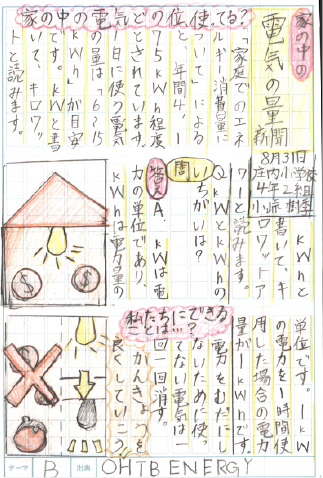 家の中の
電気の量
新聞
8月31日
庄内小学校
4年2組
家の中の電気どの位、使ってる?
「家庭でのエネ
ルギー消費量に
ついて」による
と、年間4,1
75kWh程度
とされています。
1日に使う電気
の量は「6~15
kWh」が目安
です。kWと書
いて、キロワッ
トと読みます。
kWhと
書いて、キ
ロワットア
ワーと読みます。
問
Q kWとkWhの
ちがいは?
答え
A、kWは電
力の単位であり、
kWhは電力量の
単位です。1kW
の電力を1時間使
用した場合の電力
量が1kWhです。
私たちにできる
ことは…?
電力をむだにし
ないために使っ
てない電気は一
回一回消す。
かんきょうを
良くしていこう
テーマ B 出典 OHTB ENERGY